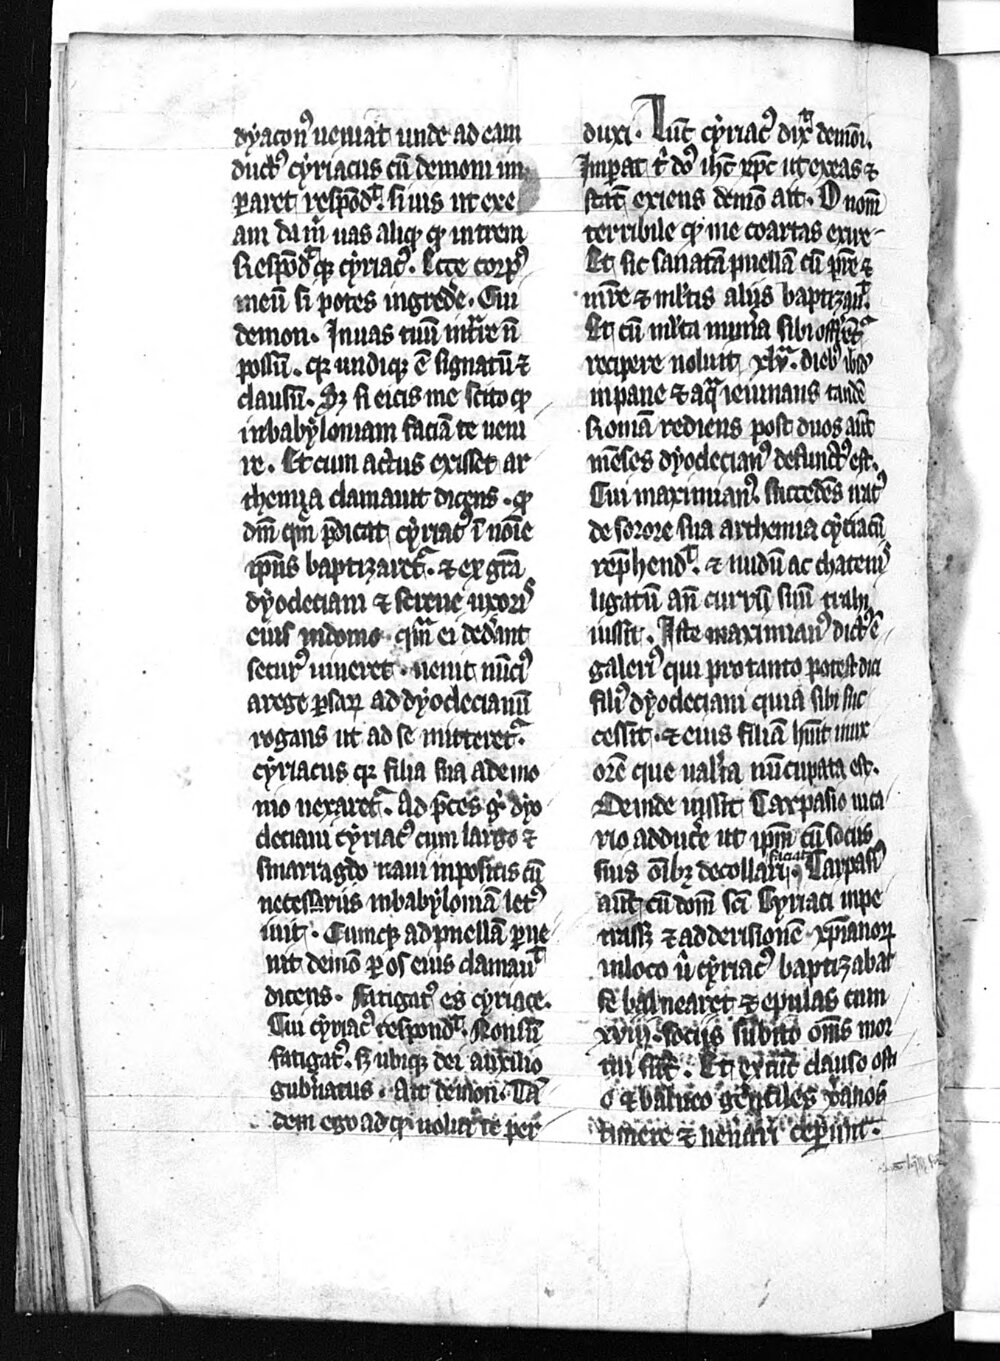 dyacon⁹ ueniat unde ad eam
duct⁹ cyriacus cū demoni im
ꝑaret respōdˀ. si uis ut exe
am da m̄ uas aliq̄ qͦ intrem
Respōdˀq; cyriac⁹. Ecce corp⁹
meū si potes ingredˀe. Cui
demon. In uas tuū intˀre ñ
possū. qꝛ undiq; ē signatū ⁊
clausū. Sꝫ si eicis me scito qͦ
in babyloniam faciā te ueni
re. Et cum actus exisset ar
themia clamauit dicens. qͦ
dm̄ qm̄ p̄dicat cyriac⁹ ī noīe
ip̄ius baptizaretˀ. ⁊ ex gr̄a
dyocleciani ⁊ serene uxoris
eius in domo qm̄ ei dedˀant
secur⁹ uiueret. uenit nūci⁹
a rege ꝑsaꝝ ad dyoclecianū
rogans ut ad se mitteretˀ
cyriacus qꝛ filia sua a demo
nio uexaretˀ. Ad p̄ces gͦ dyo
cleciani cyriac⁹ cum largo ⁊
smaragdo naui inpositis cū
necessariis in babyloniā let⁹
iuit. Cumq; ad puellā ꝑue
nit demō ꝑ os eius clamauˀ
dicens. Fatigat⁹ es cyriace.
Cui cyriac⁹ respondˀ. Non sū
fatigat⁹. sꝫ ubiq; dei auxilio
gubˀnatus. Ait demon. Ta
dem ego ad qͦ uolui te per
duxi. Tūc cyriac⁹ dixˀ demoi.
Impat tˀ dn̄s ih̄c xp̄c ut exeas ⁊
statī exiens demō ait. O nom̄
terribile qͦ me coartas exire
Et sic sanatā puellā cū pr̄e ⁊
mr̄e ⁊ mltis aliis baptizauˀ.
Et cū mlta munˀa sibi offˀretˀ
recipere noluit xlv. dieb⁹ ibidˀ
in pane ⁊ aq̄ ieiunans tandē
Romā rediens post duos aūt
mēses dyoclecian⁹ defunct⁹ est.
Cui maximian⁹ succedēs irat⁹
de sorore sua arthemia cyriacū
rep̄hendˀ. ⁊ nudū ac chatenis
ligatū an̄ currū suū trahi
iussit. Iste maximian⁹ dict⁹ ē
galeri⁹ qui pro tanto potest dici
fili⁹ dyocleciani quia sibi suc
cessit. ⁊ eius filiā h̄uit in ux
orē que ualˀia nūcupata est.
Deinde iussit Carpasio uica
rio adducˀe ut ip̄m cū sociis
suis oīb⁹ decollari faciat. Carpasi⁹
aūt cū dom̄ sc̄i Cyriaci inpe
trass; ⁊ ad derisionē xp̄ianoꝝ
in loco ū cyriac⁹ baptizabat
se balnearet ⁊ epulas cum
xviiii. sociis subito om̄s mor
tui sūt. Et ex tūc clauso osti
o ⁊ balneo gentiles xp̄ianos
timere ⁊ uenˀari ceperunt.